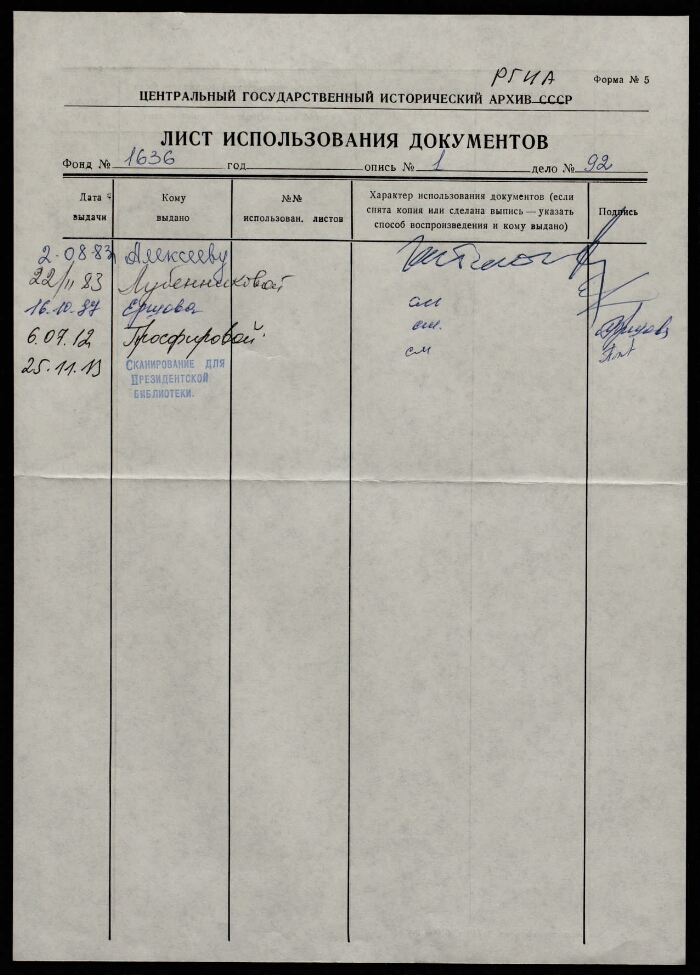 РГИА Форма № 5
ЦЕНТРАЛЬНЫЙ ГОСУДАРСТВЕННЫЙ ИСТОРИЧЕСКИЙ АРХИВ СССР
ЛИСТ ИСПОЛЬЗОВАНИЯ ДОКУМЕНТОВ
Фонд № 1636 год опись № 1 дело № 92
Дата выдачи
Кому выдано
№№ использован. листов
Характер использования документов (если
снята копия или сделана выпись — указать
способ воспроизведения и кому выдано)
Подпись
2.08.83 Алексееву
22/11 83 Лубенниковой
16.10.87 Ершова см
6.07.12 Просфировой. см.
25.11.13 СКАНИРОВАНИЕ ДЛЯ см
ПРЕЗИДЕНТСКОЙ
БИБЛИОТЕКИ.